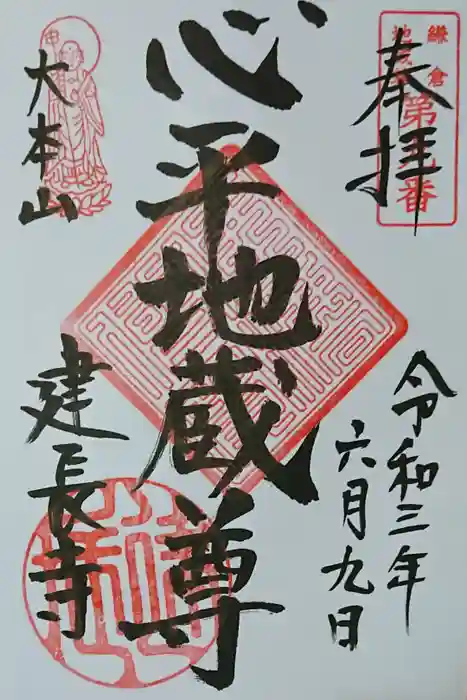 奉拝
鎌倉
第九番
令和三年
六月九日
心平地蔵尊
大本山
建長寺